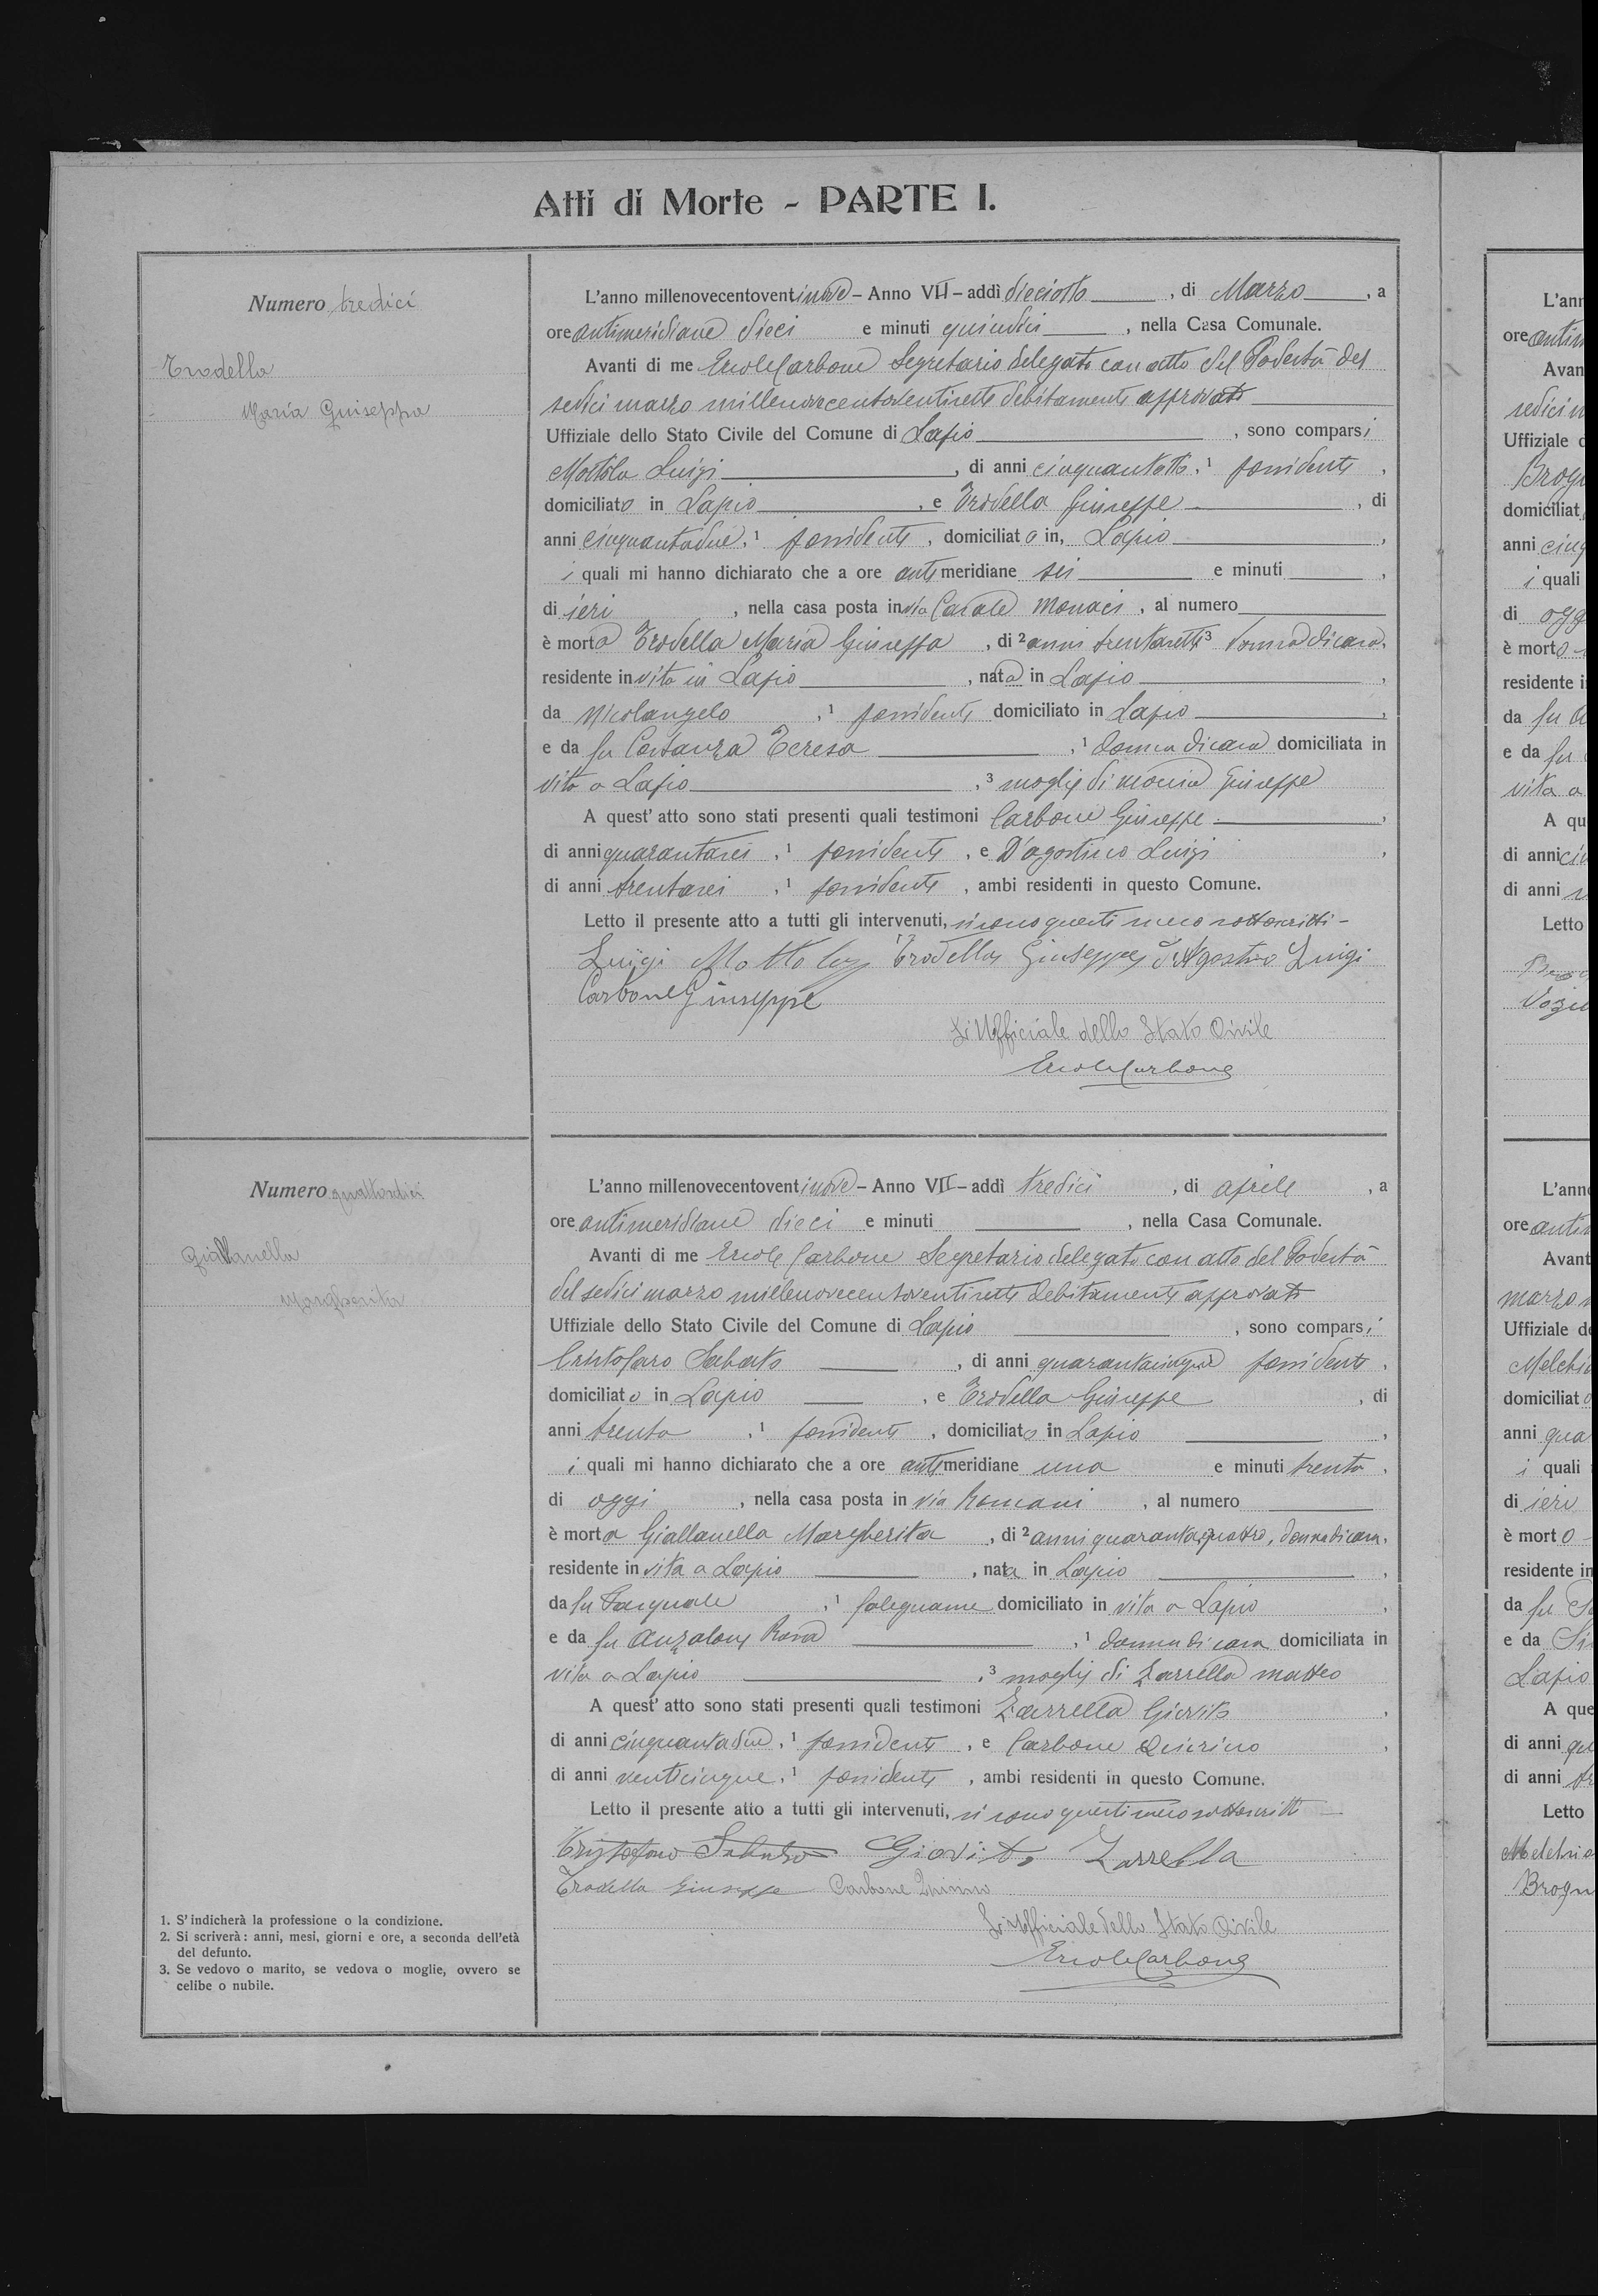 Atti di Morte - PARTE I.
Numero tredici
Trodella
Maria Giuseppa
L'anno millenovecentoventinove - Anno VII - addì dieciotto, di Marzo, a
ore antimeridiane dieci e minuti quindici, nella Casa Comunale.
Avanti di me Ercole Carbone Segretario delegato con atto del Podestà del
sedici marzo millenovecentoventisette debitamente approvato
Uffiziale dello Stato Civile del Comune di Lapio, sono comparsi
Mottola Luigi, di anni cinquantotto, 1 possidente,
domiciliato in Lapio, e Trodella Giuseppe, di
anni cinquantadue, 1 possidente, domiciliato in, Lapio,
i quali mi hanno dichiarato che a ore antimeridiane sei e minuti,
di ieri, nella casa posta in via Casale Monaci, al numero
è morta Trodella Maria Giuseppa, di 2 anni trentasette 3 donna di casa,
residente in vita in Lapio, nata in Lapio,
da Nicolangelo, 1 possidente domiciliato in Lapio,
e da fu Costanza Teresa, 1 donna di casa domiciliata in
vita a Lapio, 3 moglie di Giuseppe
A quest' atto sono stati presenti quali testimoni Carbone Giuseppe,
di anni quarantasei, 1 possidente, e D'agostino Luigi,
di anni trentasei, 1 possidente, ambi residenti in questo Comune.
Letto il presente atto a tutti gli intervenuti, si sono questi meco sottoscritti -
Luigi Mottola Trodella Giuseppe d'Agostino Luigi
Carbone Giuseppe
L'Ufficiale dello Stato Civile
Ercole Carbone
Numero quattordici
Giallanella
Margherita
L'anno millenovecentoventinove - Anno VII - addì tredici, di aprile, a
ore antimeridiane dieci e minuti, nella Casa Comunale.
Avanti di me Ercole Carbone Segretario delegato con atto del Podestà
del sedici marzo millenovecentoventisette debitamente approvato
Uffiziale dello Stato Civile del Comune di Lapio, sono comparsi
Cristofaro Sabato, di anni quarantacinque possidente,
domiciliato in Lapio, e Trodella Giuseppe, di
anni trenta, 1 possidente, domiciliato in Lapio,
i quali mi hanno dichiarato che a ore antimeridiane una e minuti trenta,
di oggi, nella casa posta in via Romani, al numero
è morta Giallanella Margherita, di 2 anni quarantaquattro, donna di casa,
residente in vita a Lapio, nata in Lapio,
da fu Pasquale, 1 falegname domiciliato in vita a Lapio,
e da fu Anzalone Rosa, 1 donna di casa domiciliata in
vita a Lapio, 3 moglie di Zarrella Matteo
A quest' atto sono stati presenti quali testimoni Zarrella Giovito,
di anni cinquantadue, 1 possidente, e Carbone Quirino,
di anni venticinque, 1 possidente, ambi residenti in questo Comune.
Letto il presente atto a tutti gli intervenuti, si sono questi meco sottoscritti
Cristofaro Sabato Giovito Zarrella
Trodella Giuseppe Carbone Quirino
L'Ufficiale dello Stato Civile
Ercole Carbone
1. S' indicherà la professione o la condizione.
2. Si scriverà: anni, mesi, giorni e ore, a seconda dell'età
del defunto.
3. Se vedovo o marito, se vedova o moglie, ovvero se
celibe o nubile.